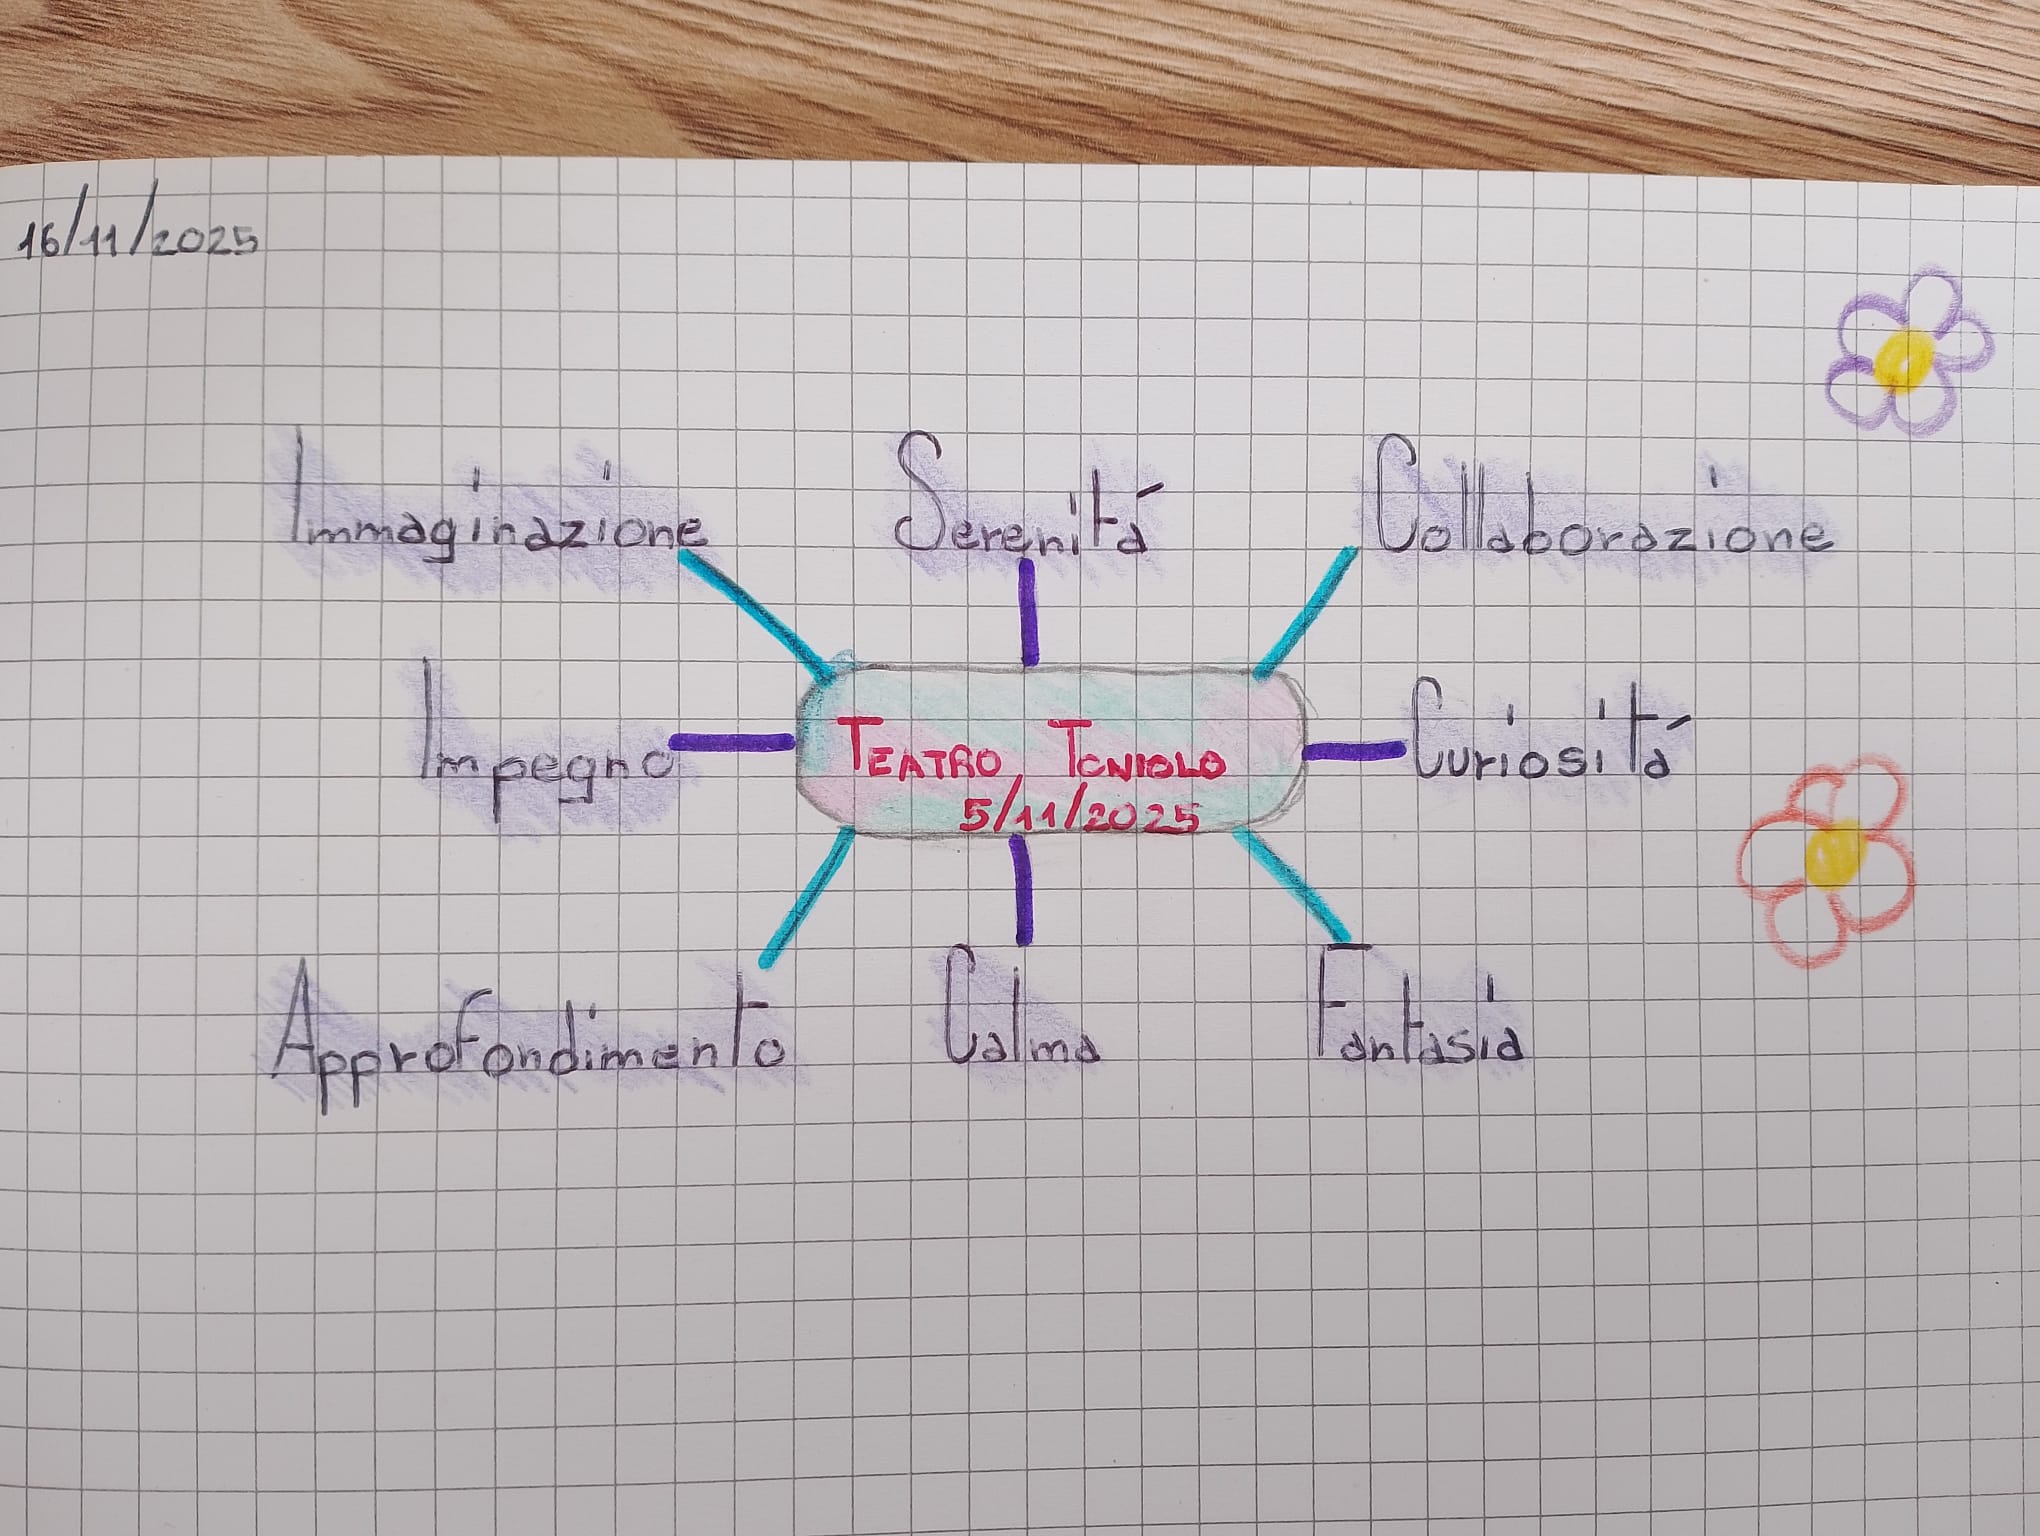 16/11/2025
Immaginazione
Serenitá
Collaborazione
Impegno
TEATRO, TONIOLO
5/11/2025
Curiositá
Approfondimento
Calma
Fantasia